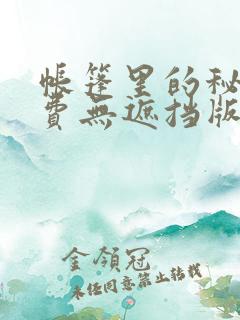 帳篷里的秘
費無遮挡版
金領冠
未经同意禁止转载